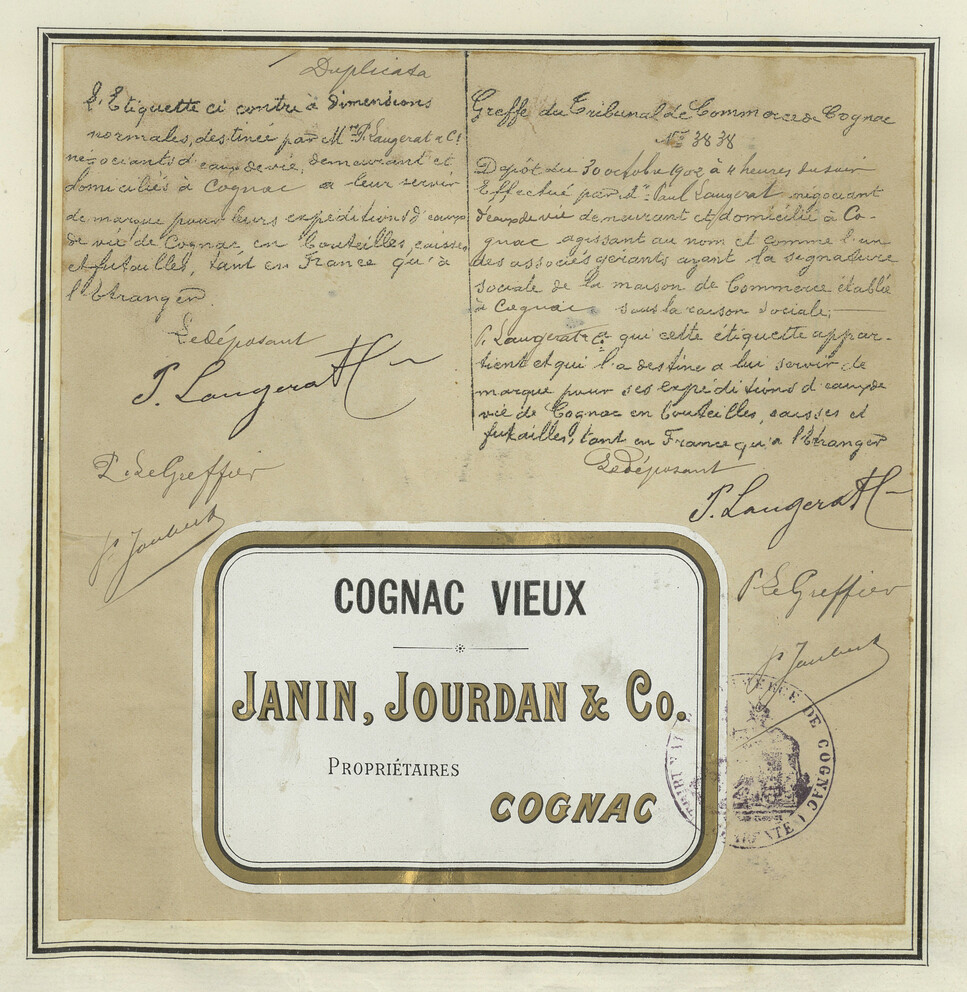 Duplicata
L'Etiquette ci contre à dimensions
normales, destinée par Mrs P. Laugerat & Cie
négociants d'eaux de vie, demeurant et
domiciliés à Cognac a leur servir
de marque pour leurs expéditions d'eaux
de vie de Cognac en bouteilles, caisses
et futailles, tant en France qu'à
l'Etranger.
Le déposant
P. Laugerat
P. Le Greffier
Joubert
Greffe du Tribunal de Commerce de Cognac
No 3838
Dépôt du 30 octobre 1902 à 4 heures du soir
Effectué par Sr Paul Laugerat négociant
d'eaux de vie demeurant et domicilié à Co-
gnac agissant au nom et comme l'un
des associés gérants ayant la signature
sociale de la maison de Commerce établie
à Cognac sous la raison sociale;
P. Laugerat & Cie qui cette étiquette appar-
tient et qui l'a destine a lui servir de
marque pour ses expéditions d'eaux de
vie de Cognac en bouteilles, caisses et
futailles, tant en France qu'a l'Etranger
Le déposant
P. Laugerat
P. Le Greffier
Joubert
COGNAC VIEUX
JANIN, JOURDAN & Co.
PROPRIÉTAIRES
COGNAC
COMMERCE DE COGNAC